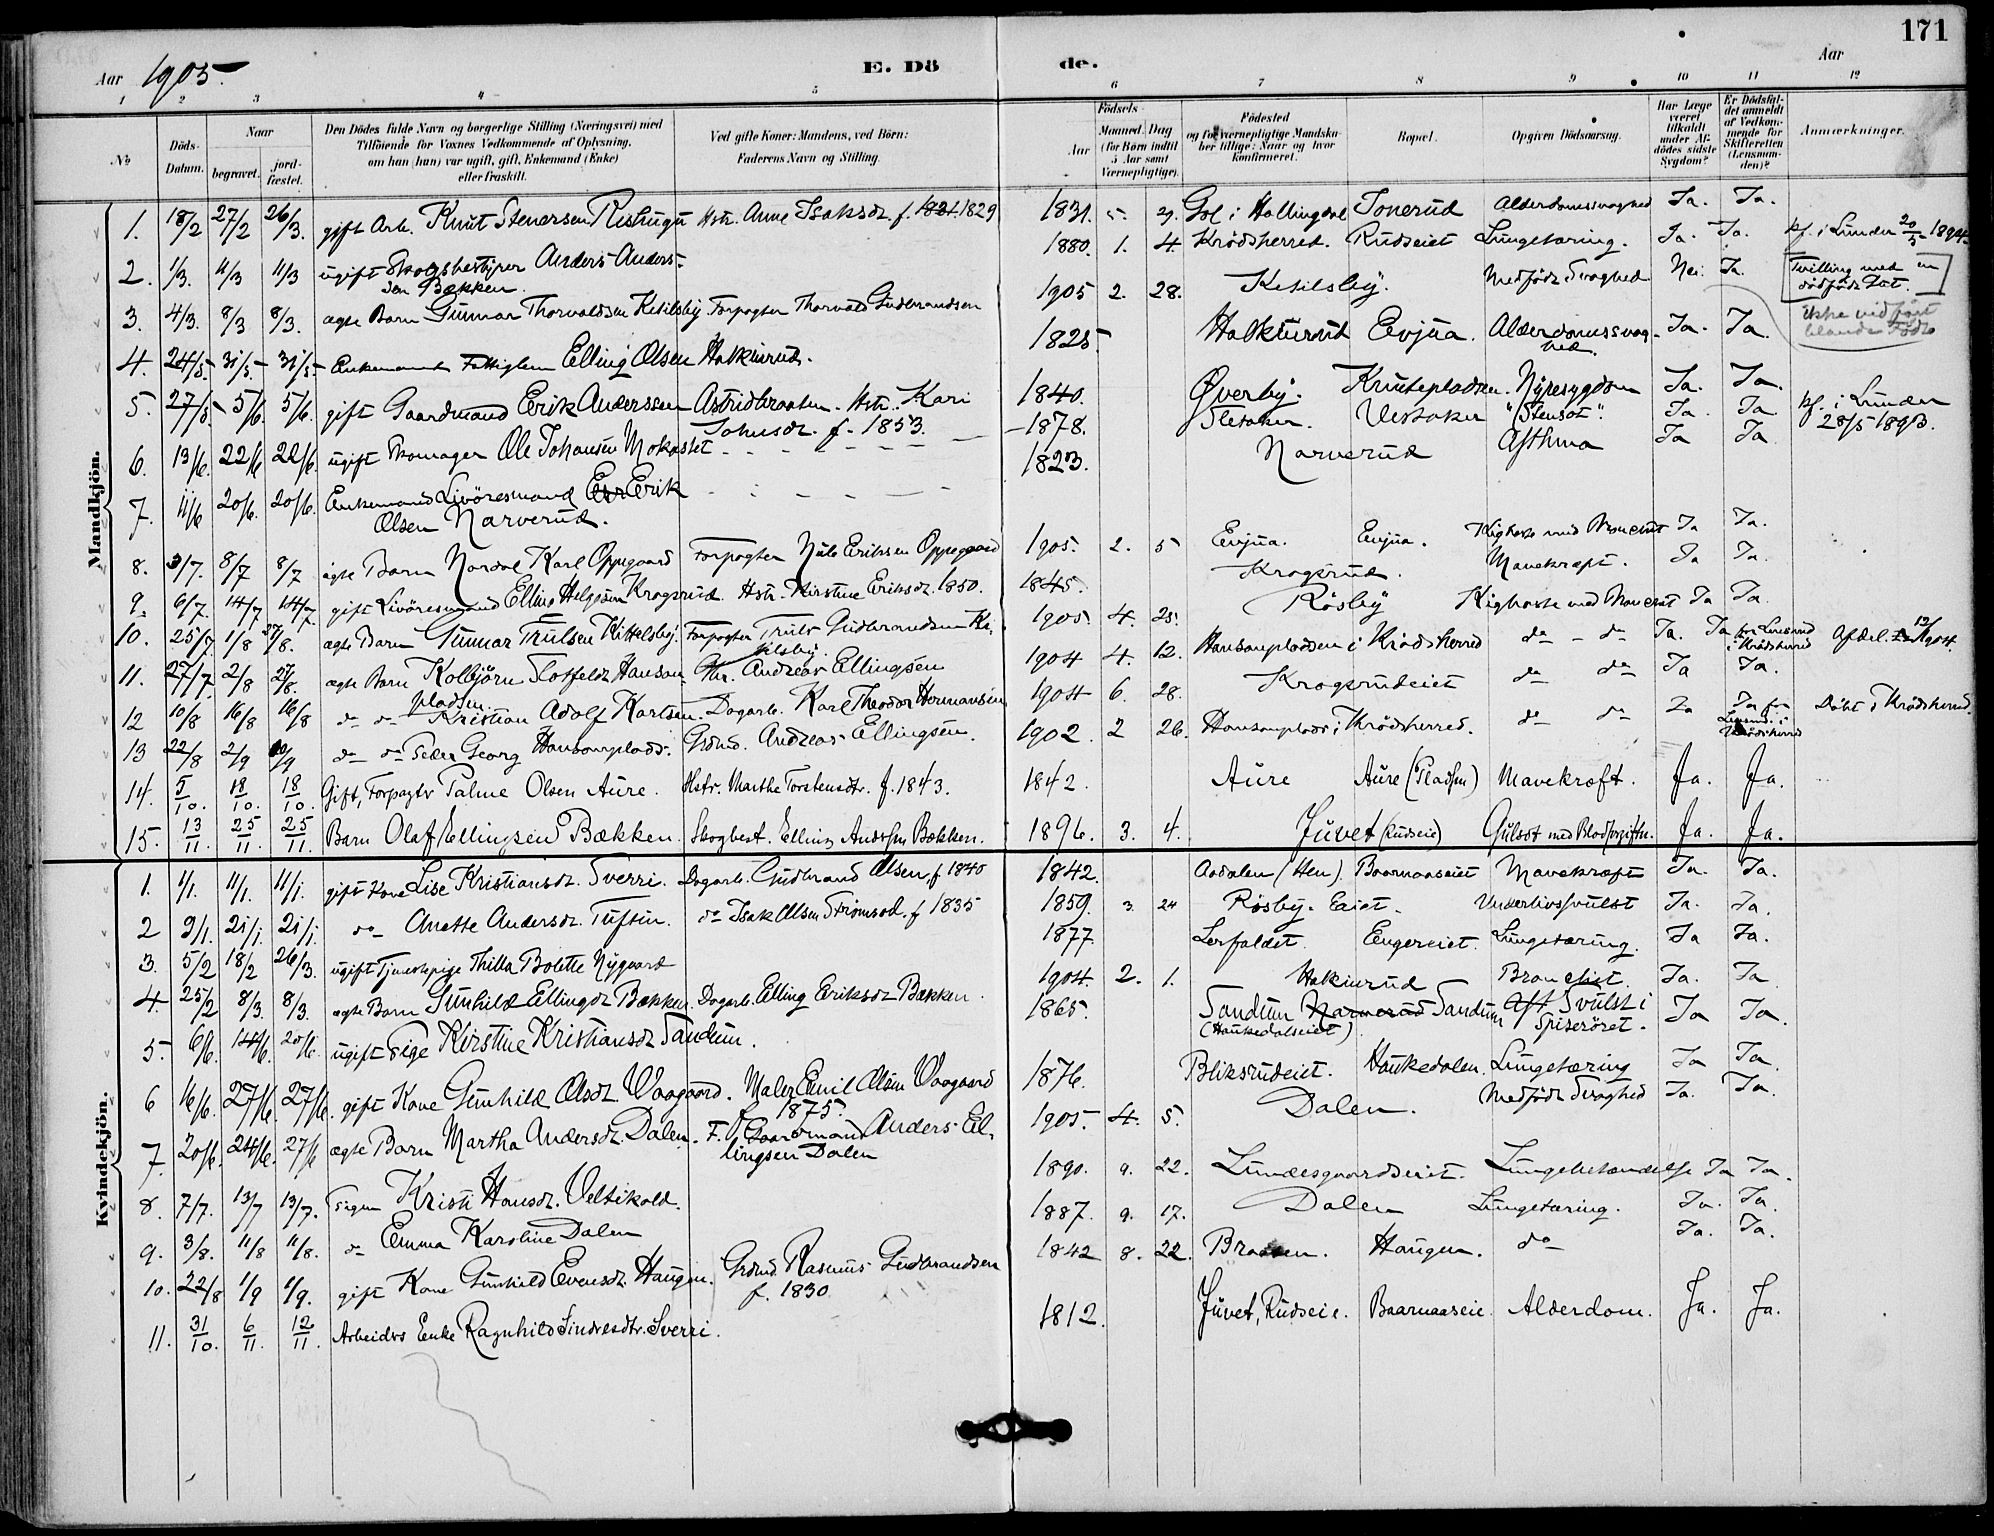 171
Aar 1905. E. Dö de. Aar
1 2 3 4 5 6 7 8 9 10 11 12
No Döds-Datum. Naar begravet. jord-fæstet. Den Dödes fulde Navn og borgerlige Stilling (Næringsvei) med Tilföiende for Voxnes Vedkommende af Oplysning, om han (hun) var ugift, gift, Enkemand (Enke) eller fraskilt. Ved gifte Koner: Mandens, ved Börn: Faderens Navn og Stilling. Födsels- Aar Maaned. Dag (for Börn indtil 5 Aar samt Værnepligtige). Födested og for værnepligtige Mandskaber tillige: Naar og hvor konfirmeret. Bopæl. Opgiven Dödsaarsag. Har Læge været tilkaldt under Afdödes sidste Sygdom? Er Dödsfaldet anmeldt af Vedkommende for Skifteretten (Lensmanden)? Anmærkninger.
Mandkjön.
1. 18/2 27/2 26/3. gift Arb. Knut Stenersen Hstr. Anne Isaksdr. f. 1821. 1829 1831. 5. 29. Gol i Hallingdal Tonerud Alderdomssvaghed Ja. Ja.
2. 1/3. 11/3 11/3 ugift Skogsbestyrer Anders Andersen Bækken. 1880. 1. 4. Krödsherred. Rudseiet Lungetæring. Ja. Ja. kf. i Lunder 20/5 1894.
3. 4/3. 8/3 8/3. ægte Barn Gunnar Thorvaldsen Ketilsby Forpagter Thorvald Gudbrandsen 1905 2. 28. Ketilsby. Medfödt Svaghed Nei. Ja. Tvilling med en dödfödt Gut. ikke vid fört blandt Födte
4. 24/5. 31/5. 31/5. Enkemand Fattiglem Elling Olsen Halkinrud. 1825. Halkinrud Eevjua. Alderdomssvaghed. Ja. Ja.
5. 27/5. 5/6. 5/6. gift Gaardmand Erik Anderssen Astridbraaten. Hstr. Kari Johnsdr. f. 1853. 1840. Överby. Knutepladsen. Nyresygdom Ja. Ja.
6. 13/6. 22/6. 22/6. ugift Skomager Ole Johansen Mokastet 1878. Sletaker. Vestaker "Stensot". Ja. Ja. kf. i Lunder 28/5 1893.
7. 11/6 20/6. 20/6. Enkemand Livöresmand Erik Olsen Narverud. 1823. Narverud Asthma Ja Ja.
8. 3/7. 8/7 8/7 ægte Barn Nordal Karl Oppegaard Forpagter Nils Eriksen Oppegaard 1905. 2. 5 Evjua. Evjua. Kighoste med Bronchit Ja Ja.
9. 6/7. 14/7 14/7. gift Livöresmand Elling Helgesen Krogsrud. Hstr. Kirstine Eriksdr. 1850. 1845. Krogsrud. Mavekræft. Ja Ja.
10. 25/7 1/8 27/8. ægte Barn Gunnar Trulsen Kittelsby. Forpagter Truls Gudbrandsen Kitilsby. 1905. 4. 25. Rösby Kighoste med Bronchit Ja Ja.
11. 27/7. 2/8 27/8. ægte Barn Kolbjörn Slotfeldt Hansonpladsen. Andreas Ellingsen 1904 4. 12. Hansonpladsen i Krödsherred do - do Ja. Ja for Lensmd i Krödsherred Afdel. 12/ 1904.
12 10/8 16/8 16/8 do do Kristian Adolf Karlsen. Dagarb. Karl Theodor Hermansen 1904 6. 28. Krogsrudeiet do do Ja Ja.
13 22/8 2/9 10/9 do do Peder Georg Hansonplads. Grdmd. Andreas Ellingsen. 1902. 2 26. Hansonplads i Krödsherred. do do Ja Ja for Lensmd. i Krödsherred Döbt i Krödsherred.
14. 5/10. 18/10. 18/10. Gift, Forpagtr Palme Olsen Aure. Hstr. Marthe Torstensdtr. f. 1843. 1842. Aure Aure (Pladsen) Mavekræft. Ja. Ja.
15. 13/11. 25/11. 25/11. Barn Olaf Ellingsen Bækken. Skogbest. Elling Andersen Bækken. 1896. 3. 4. Juvet (Rudseie) Gulsot med Blodforgiftn. Ja. Ja.
Kvindekjön.
1. 1/1. 11/1. 11/1. gift Kone Lise Kristiansdr. Sverri. Dagarb. Gudbrand Olsen, f 1840 1842. Aadalen (Hen). Baarnaaseiet Mavekræft Ja. Ja.
2 9/1. 21/1. 21/1. do Anette Andersdr. Tuftin. do Isak Olsen Strömsod. f 1835 1859. 3. 24 Rösby. Eiet. Underlivssvulst Ja. Ja.
3. 5/2 18/2 26/3. ugift Tjenestepige Thilla Bolette Nygaard 1877. Lerfaldet. Engereiet. Lungetæring. Ja Ja.
4. 25/2 8/3. 8/3. ægte Barn Gunhild Ellingsdr Bækken. Dagarb. Elling Eriksdr Bækken. 1904. 2. 1. Hakinrud Bronchit. Ja. Ja
5. 6/6. 14/6. 20/6. ugift Pige Kirstine Kristiansdr Sandum. 1865. Sandum (Haukedalseiet) Narverud Sandum Aft Svulst i Spiseröret. Ja Ja.
6 16/6. 27/6. 27/6. gift Kone Gunhild Olsdr. Vaagaard. Maler Emil Olsen Vaagaard f. 1875. 1876. Bliksrudeiet. Haukedalen. Lungetæring Ja Ja
7. 20/6. 24/6. 27/6 ægte Barn Martha Andersdr. Dalen. F. Gaardmand Anders Ellingsen Dalen 1905. 4. 5. Dalen. Medfödt Svaghed Ja. Ja.
8. 7/7. 13/7 13/7. Pigen Kristi Hansdr. Veltikold. 1890. 9. 22. Lundesgaardseiet. Lungebetændelse Ja Ja.
9. 3/8. 11/8 11/8. do Emma Karoline Dalen 1887. 9. 17. Dalen Lungetæring. Ja. Ja.
10. 22/8 1/9 1/9. gift Kone Gunhild Evensdr. Haugen. Grdmd. Rasmus Gudbrandsen f. 1830 1842 8. 22. Braaten. Haugen. do Ja. Ja.
11. 31/10. 6/11. 12/11. Arbeiders Enke Ragnhild Sindresdtr. Sverri. 1812. Juvet, Rudseie. Baarnaaseie. Alderdom. Ja. Ja.